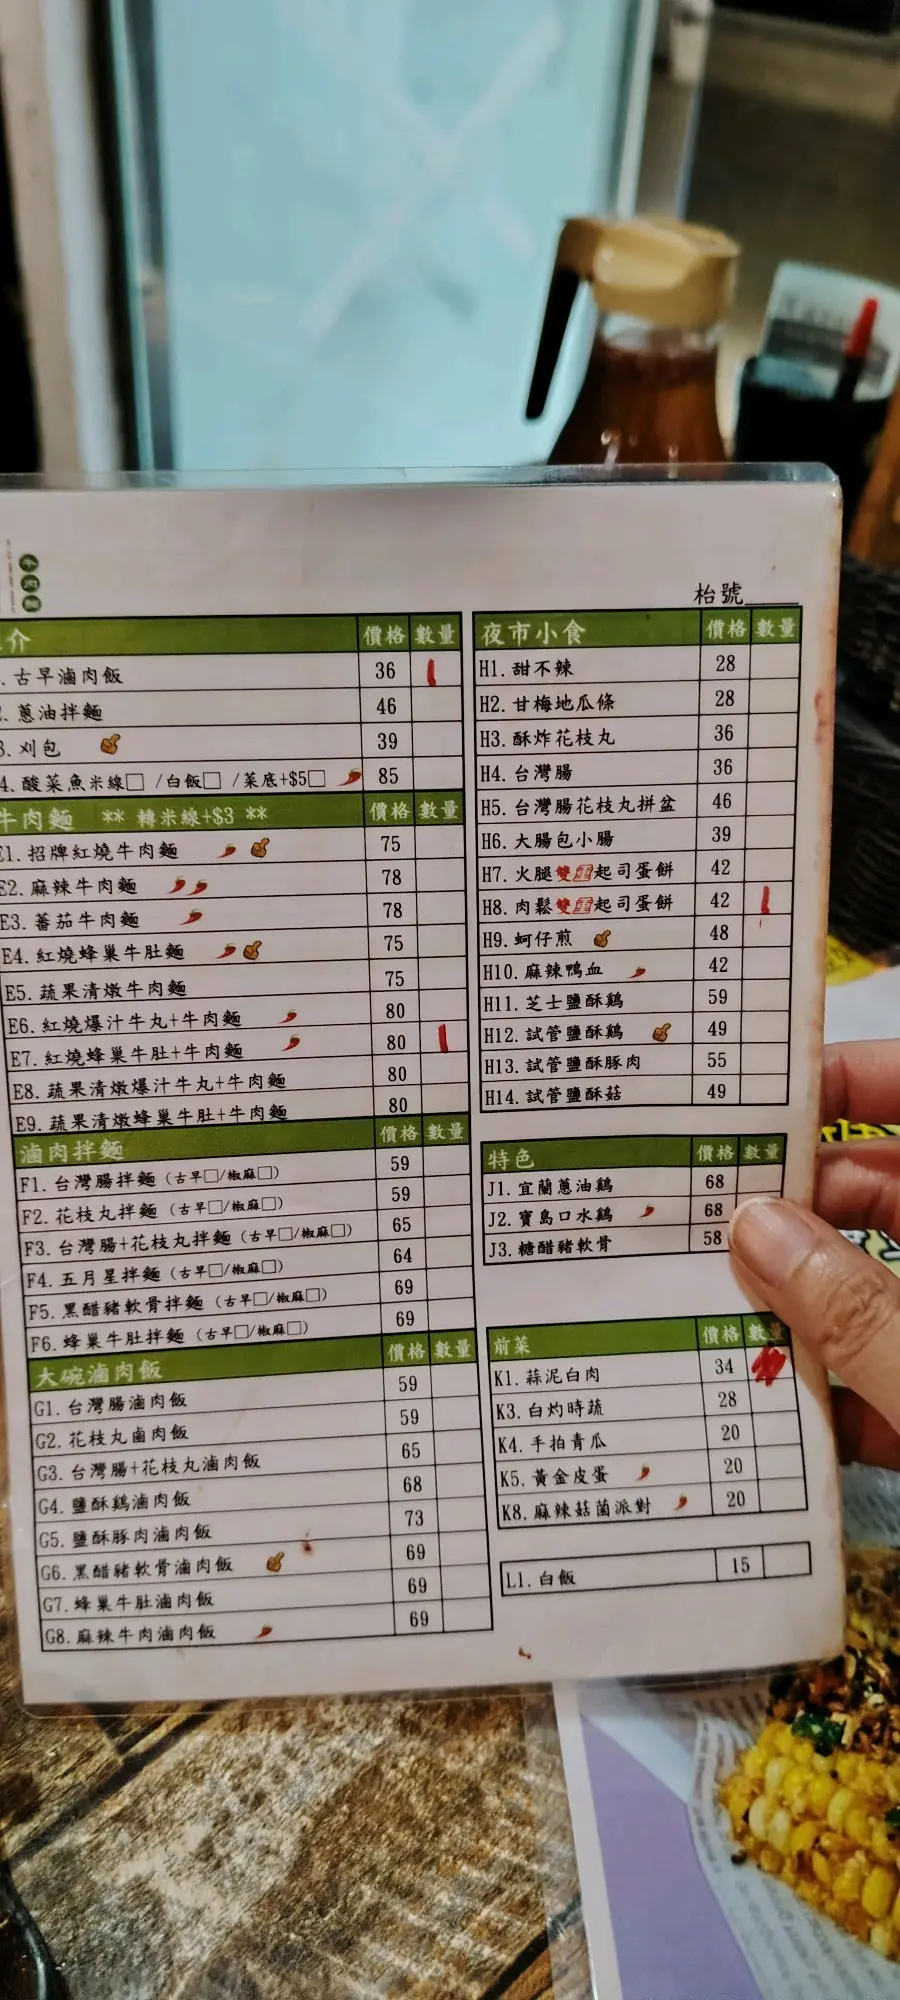 枱號
介 價格 數量
. 古早滷肉飯 36
. 蔥油拌麵 46
3. 刈包 39
4. 酸菜魚米線□ /白飯□ /菜底+$5□ 85
牛肉麵 ** 轉米線+$3 ** 價格 數量
E1. 招牌紅燒牛肉麵 75
E2. 麻辣牛肉麵 78
E3. 蕃茄牛肉麵 78
E4. 紅燒蜂巢牛肚麵 75
E5. 蔬果清燉牛肉麵 75
E6. 紅燒爆汁牛丸+牛肉麵 80
E7. 紅燒蜂巢牛肚+牛肉麵 80
E8. 蔬果清燉爆汁牛丸+牛肉麵 80
E9. 蔬果清燉蜂巢牛肚+牛肉麵 80
滷肉拌麵 價格 數量
F1. 台灣腸拌麵 (古早□/椒麻□) 59
F2. 花枝丸拌麵 (古早□/椒麻□) 59
F3. 台灣腸+花枝丸拌麵 (古早□/椒麻□) 65
F4. 五月星拌麵 (古早□/椒麻□) 64
F5. 黑醋豬軟骨拌麵 (古早□/椒麻□) 69
F6. 蜂巢牛肚拌麵 (古早□/椒麻□) 69
大碗滷肉飯 價格 數量
G1. 台灣腸滷肉飯 59
G2. 花枝丸鹵肉飯 59
G3. 台灣腸+花枝丸滷肉飯 65
G4. 鹽酥鷄滷肉飯 68
G5. 鹽酥豚肉滷肉飯 73
G6. 黑醋豬軟骨滷肉飯 69
G7. 蜂巢牛肚滷肉飯 69
G8. 麻辣牛肉滷肉飯 69
夜市小食 價格 數量
H1. 甜不辣 28
H2. 甘梅地瓜條 28
H3. 酥炸花枝丸 36
H4. 台灣腸 36
H5. 台灣腸花枝丸拼盆 46
H6. 大腸包小腸 39
H7. 火腿雙重起司蛋餅 42
H8. 肉鬆雙重起司蛋餅 42
H9. 蚵仔煎 48
H10. 麻辣鴨血 42
H11. 芝士鹽酥鷄 59
H12. 試管鹽酥鷄 49
H13. 試管鹽酥豚肉 55
H14. 試管鹽酥菇 49
特色 價格 數量
J1. 宜蘭蔥油鷄 68
J2. 寶島口水鷄 68
J3. 糖醋豬軟骨 58
前菜 價格 數量
K1. 蒜泥白肉 34
K3. 白灼時蔬 28
K4. 手拍青瓜 20
K5. 黃金皮蛋 20
K8. 麻辣菇菌派對 20
L1. 白飯 15